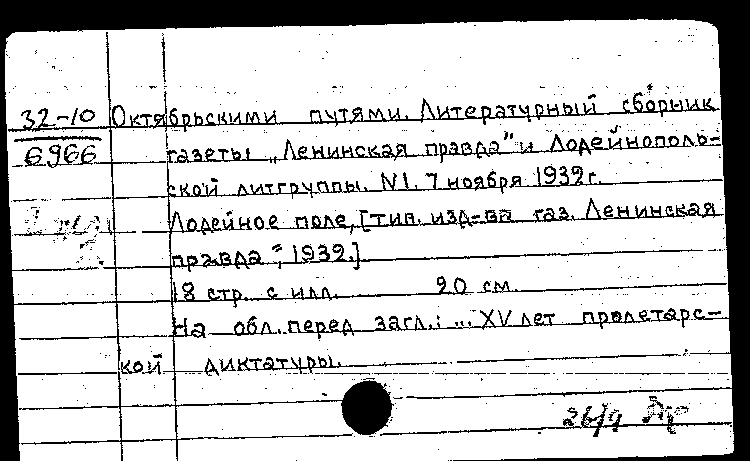 32-10 Октябрьскими путями. Литературный сборник
6966 газеты „Ленинская правда" и Лодейнополь-
ской литгруппы. N1. 7 ноября 1932г.
Лодейное поле, [тип. изд-ва газ. Ленинская
правда", 1932.]
18 стр. с илл. 20 см.
На обл. перед загл.: ... XV лет пролетарс-
кой диктатуры.
26/9